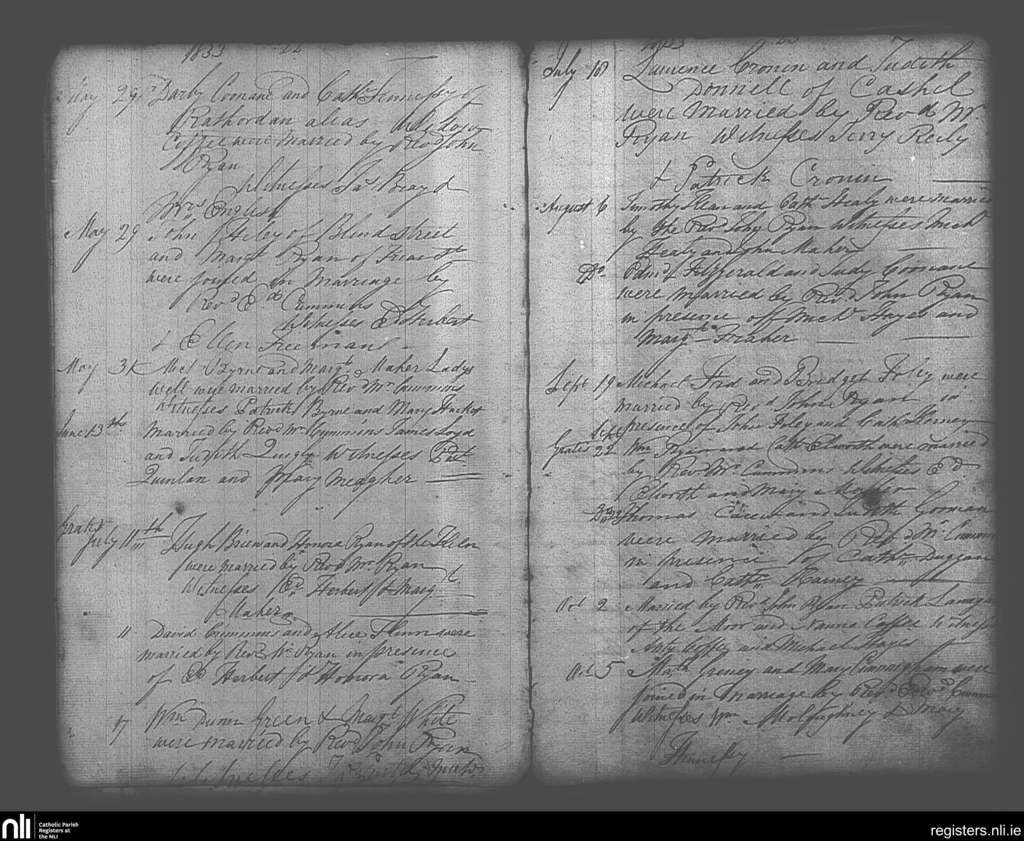 1833
May 29 Darby Comane and Cath Hennessy of
Rathordan alias
Coffee were married by Revd John
Ryan
Witnesses Jas Boyd
English
May 29 John Heley of Blind Street
and Margt Ryan of Friar St
were joined in Marriage by
Revd Ed Cummins
Witnesses Ed Herbert
& Ellen Keernan
May 31 Byrne and Margt Maher Ladys
well were married by Revd Mr Cummins
Witnesses Patrick Byrne and Mary Hacket
June 13th Married by Revd Mr Cummins James Loyd
and Judith Quirk Witnesses Patt
Quinlan and Mary Meagher
Gratis
July 11th Hugh Brien and Honora Ryan of the
were married by Revd Mr Ryan
Witnesses Ed Herbert & Marg
Maher
11 David Cummins and Alice Flinn were
married by Revd Mr Ryan in presence
of Ed Herbert & Honora Ryan
17 Wm Dunn Green & Margt White
were married by Revd John Ryan
Witnesses
July 18 Laurence Cronin and Judith
Donnell of Cashel
were Married by Revd Mr
Ryan Witnesses Jerry Reily
& Patrick Cronin
August 6 Timothy Kean and Cath Healy were married
by the Revd John Ryan Witnesses Mich
Healy and Maher
Do Edmd Fitzgerald and Judy Comane
were married by Revd John Ryan
in presence of Michl Hayes and
Margt Fraher
Sept 19 Michael Ford and Bridget Foley were
married by Revd John Ryan in
presence of John Foley and Cath Kearney
Sept
Gratis 22 Wm Ryan and Cath Elworth were married
by Revd Mr Cummins Witnesses Ed
Elworth and Mary
Thomas and Judith Gorman
were married by Revd Mr Cummins
in presence of Cathn Duggan
and Cathn Kearney
Oct 2 Married by Revd John Ryan Patrick
of the Moor and Nanno Coffee Witnesses
Coffey and Michael Hayes
Oct 5 Greney and Mary Cunningham were
joined in Marriage by Revd Edwd Cummins
Witnesses Wm Moloughney & Mary
Hennessy
nli
Catholic Parish
Registers at
the NLI
registers.nli.ie